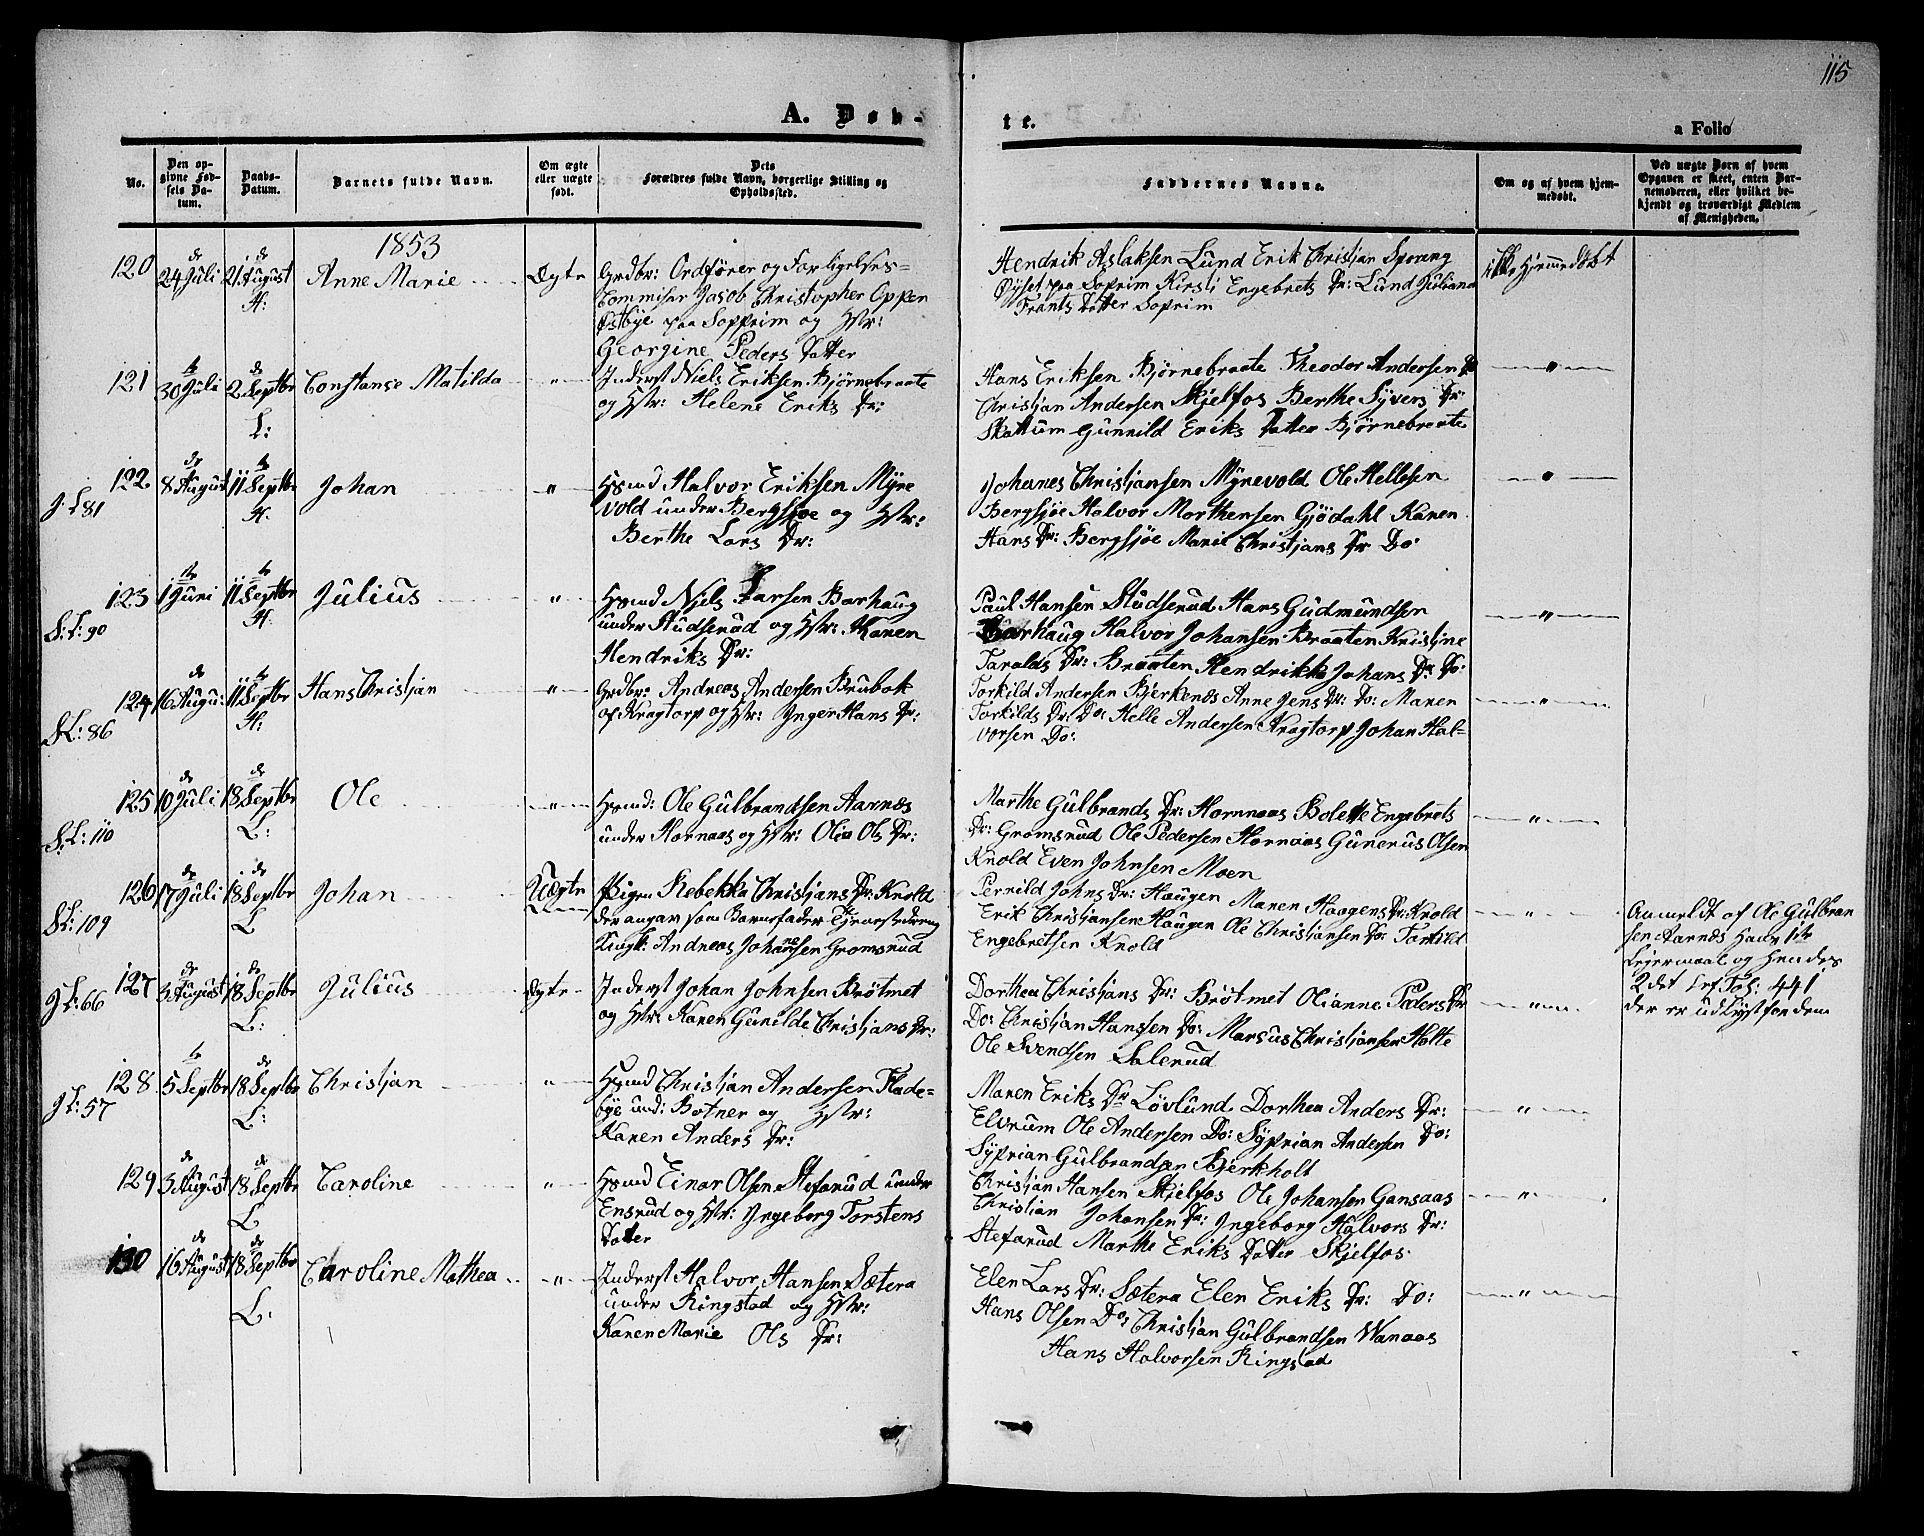 115
A. Døb-
te.
a Folio
No.
Den op-
givne Fød-
sels Da-
tum.
Daabs-
Datum.
Barnets fulde Navn.
Om ægte
eller uægte
født.
Dets
Forældres fulde Navn, borgerlige Stilling og
Opholdssted.
Faddernes Navne.
Om og af hvem hjem-
medøbt.
Ved uægte Børn af hvem
Opgaven er skeet, enten Bar-
nemoderen, eller hvilket be-
kjendt og troværdigt Medlem
af Menigheden.
1853
120
de
24 Juli
de
21 August
H:
Anne Marie
Ægte
Grdbr: Ordfører og Forligelses-
Commisær Jacob Christopher Oppen
Østbye paa Sopprim og Hstr:
Georgine Peders Datter
Hendrik Aslaksen Lund Erik Christjan Sporeng
paa Soprim Kirsti Engebrets Dr: Lund Juliana
Frants Datter Soprim
ikke Hjemmedøbt
121
te
30 Juli
de
2 Septbr
L:
Constanse Matilda
"
Inderst Niels Eriksen Bjørnebraate
og Hstr: Helene Eriks Dr:
Hans Eriksen Bjørnebraate Theodor Andersen Do
Christjan Andersen Skjelfos Berthe Syvers Dr:
Skattum Gunnild Eriks Datter Bjørnebraate
"
122
J.L81
de
8 August
te
11 Septbr
H.
Johan
"
Hsmd Halvor Eriksen Myre
vold under Bergsjøe og Hstr:
Berthe Lars Dr:
Johannes Christjansen Myrevold Ole Hellesen
Bergsjøe Halvor Morthensen Gjødahl Karen
Hans Dr: Bergsjøe Marie Christjans Dr Do:
"
123
S:L:90
te
1 Juni
te
11 Septbr
H.
Julius
"
Hsmd Niels Larsen Barhaug
under Studserud og Hstr: Karen
Hendriks Dr:
Paul Hansen Studserud Hans Gudmundsen
Barhaug Halvor Johansen Braaten Kristine
Taralds Dr: Braaten Hendrikke Johans Dr Do:
"
124
S.L:86
de
16 Augu:
te
11 Septbr
H:
Hans Christjan
"
Grdbr: Andreas Andersen Brubak
af Kragtorp og Hstr: Ynger Hans Dr:
Torkild Andersen Bjerkenes Anne Jens Dr: Do: Maren
Torkilds Dr: Do: Helle Andersen Kragtorp Johan Hal-
vorsen Do:
"
125
S.L:110
de
10 Juli
de
18 Septbr
L:
Ole
"
Hsmd: Ole Gulbrandsen Aarnæs
under Hornaas og Hstr: Olia Ols Dr:
Marthe Gulbrands Dr: Hornnaas Bolette Engebrets
Dr: Gromsrud Ole Pedersen Hornaas Gunerus Olsen
Knold Even Johnsen Moen
"
126
S.L:109
de
17 Juli
de
18 Septbr
L
Johan
Uægte
Pigen Rebekka Christjans Dr: Knold
der angav som Barnefader Tjenestedreng
Ungk: Andreas Johannesen Gromsrud
Pernild Johns Dr: Haugen Maren Haagens Dr: Knold
Erik Christjansen Haugen Ole Christjansen Do: Torkild
Engebretsen Knold
"
Anmeldt af Ole Gulbran
sen Aarnæs Hans 1te
Lejermaal og Hendes
2det Lrf. Fol: 441
der er udlyst for dem
127
J L:66
de
3 August
de
18 Septbr
L:
Julius
Ægte
Inderst Johan Johnsen Brøtmet
og Hstr: Karen Gunilde Christjans Dr:
Dorthea Christjans Dr: Brøtmet Olianne Peders Dr
Do: Christjan Hanssen Do: Marsus Christjansen Holte
Ole Svendsen Solerud
"
128
J L:57
te
5 Septbr
de
18 Septbr
L:
Christjan
"
Hsmd Christjan Andersen Flade-
bye und: Botner og Hstr:
Karen Anders Dr:
Maren Eriks Dr Løvlund Dorthea Anders Dr:
Elvrum Ole Andersen Do: Syprian Andersen Do:
Syprian Gulbrandsen Bjerkholt
"
129
de
3 August
de
18 Septbr
L
Caroline
"
Hsmd Einar Olsen Stefarud under
Ensrud og Hstr: Yngeborg Torstens
Datter
Christjan Hansen Skjelfos Ole Johansen Gansaas
Christian Johansen Do: Ingeborg Halvors Dr:
Stefarud Marthe Eriks Datter Skjelfos.
"
130
de
16 August
de
18 Septbr
L:
Caroline Mathea
"
Inderst Halvor Hansen Sætera
under Ringstad og Hstr:
Karen Marie Ols Dr:
Elen Lars Dr: Sætera Elen Eriks Dr: Do:
Hans Olsen Do: Christjan Gulbrandsen Wanaas
Hans Halvorsen Ringstad
"